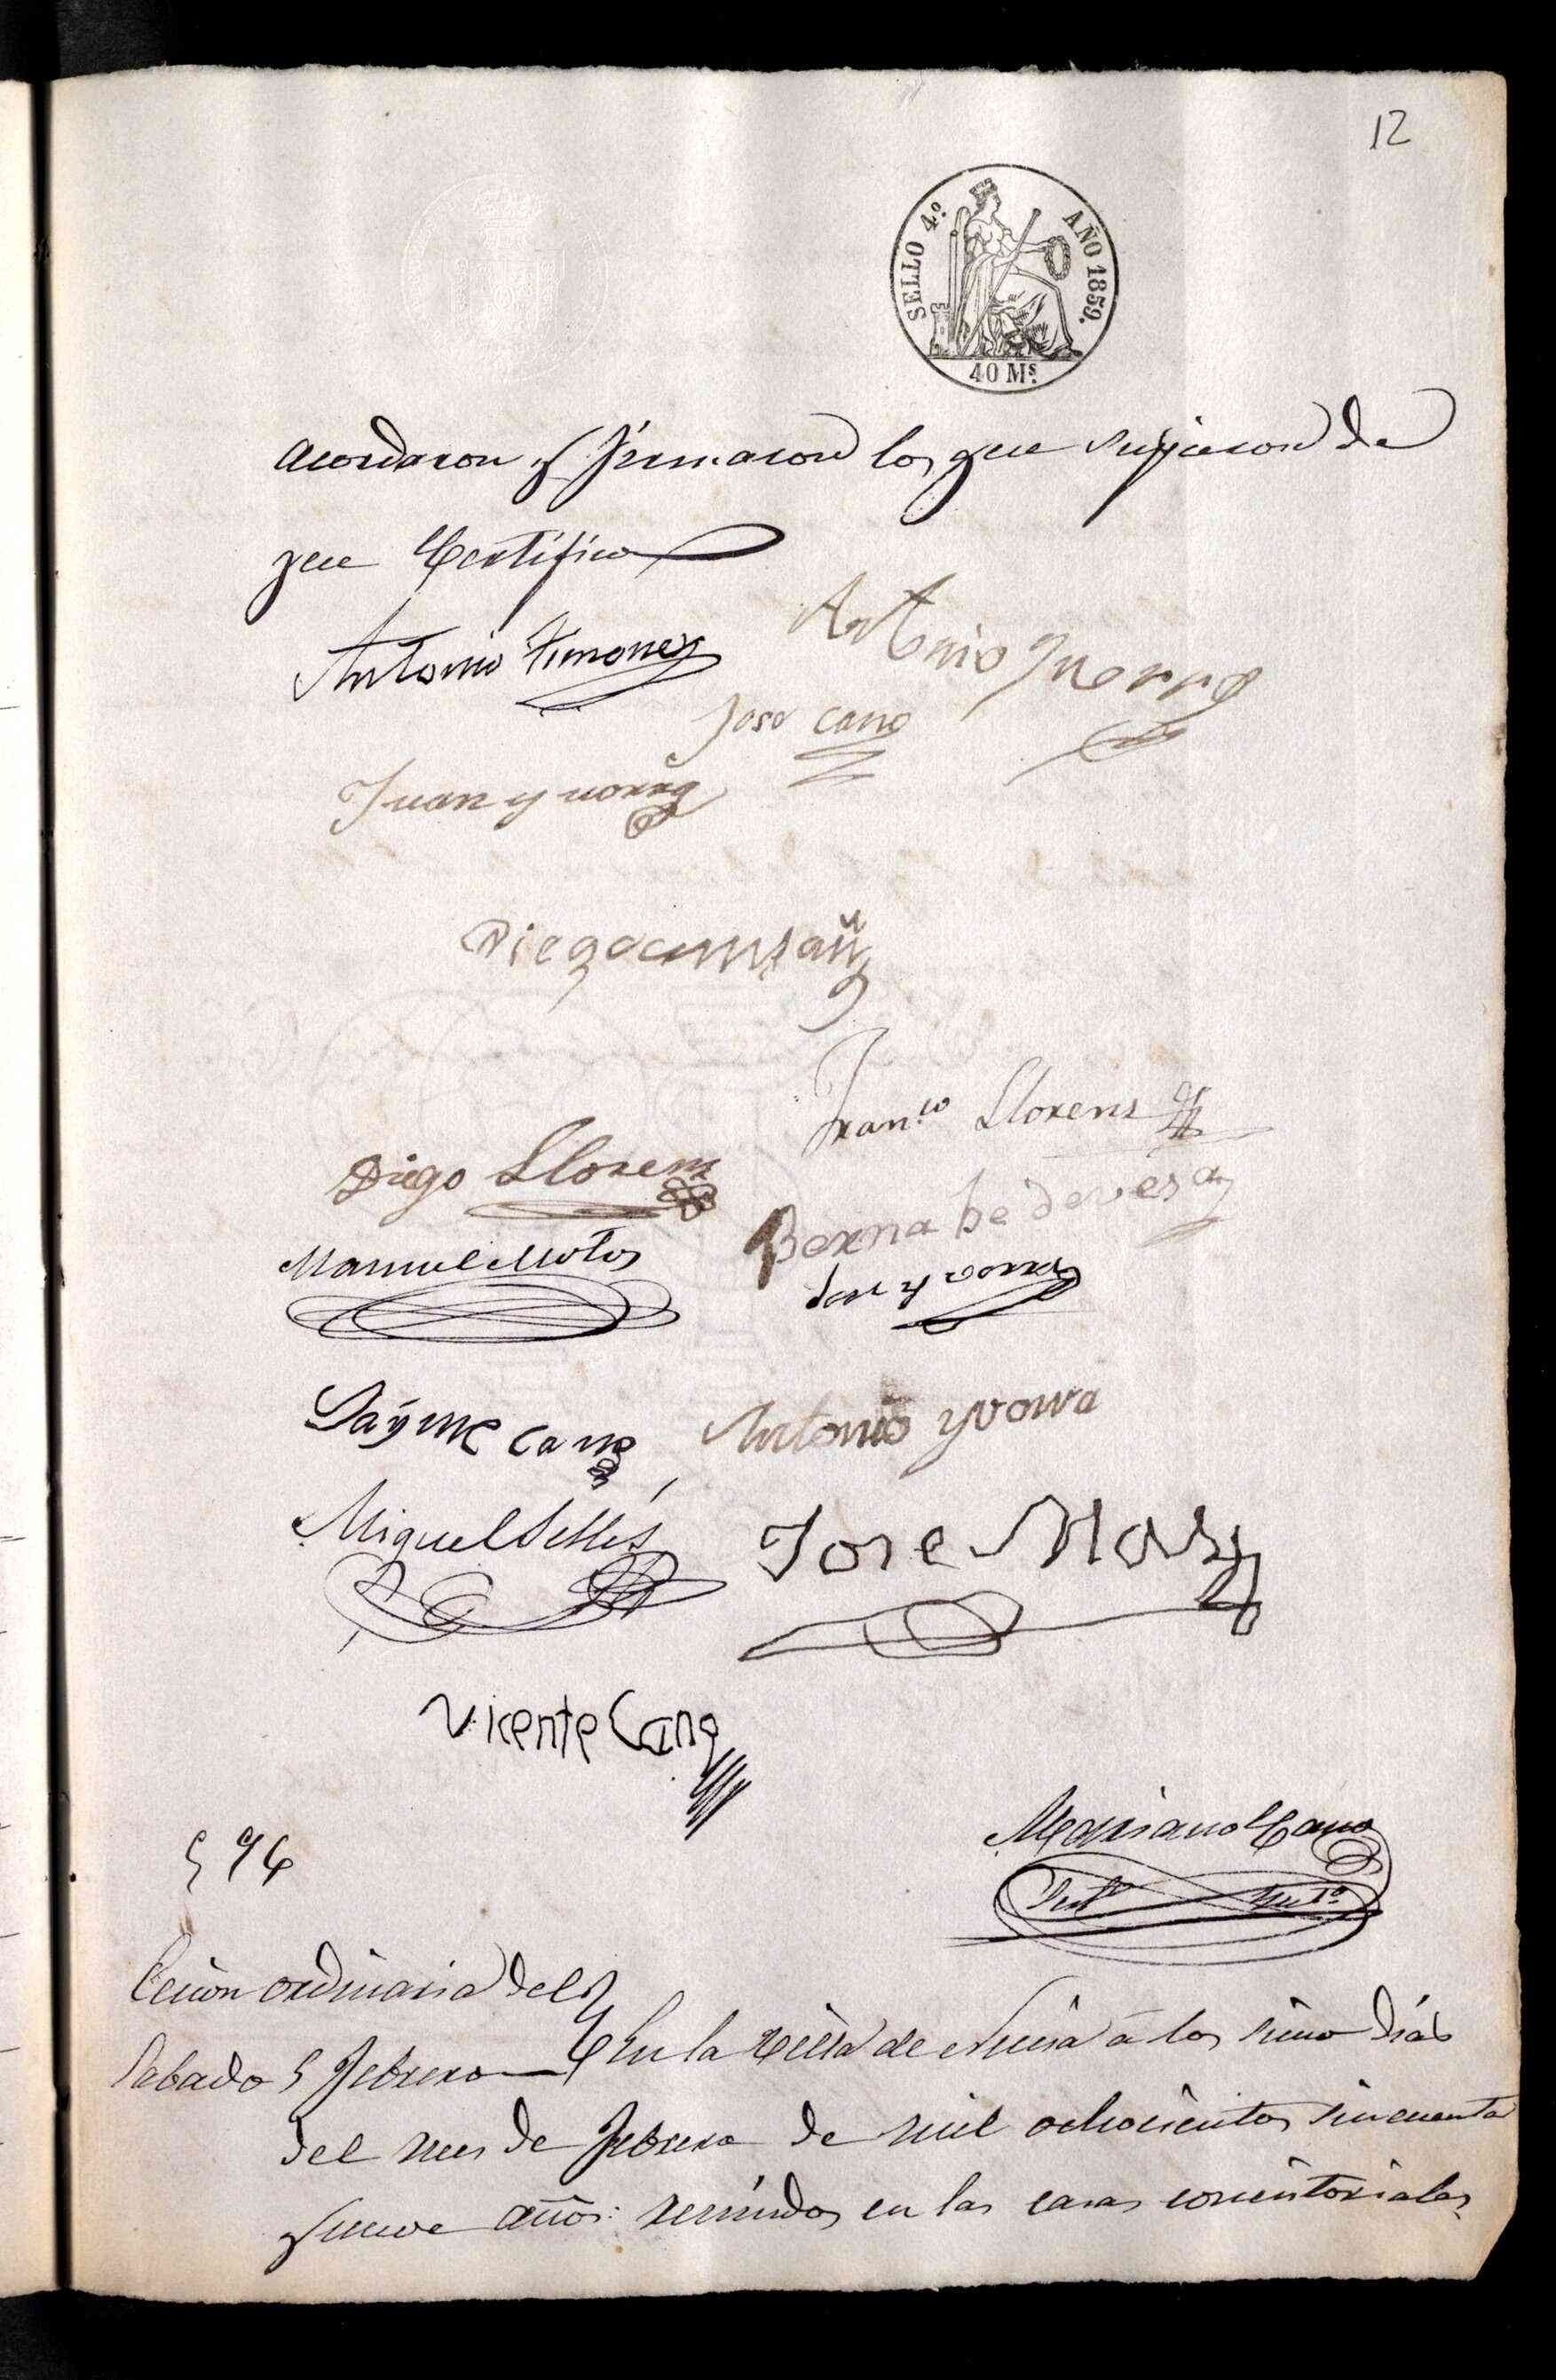 12
SELLO 4º. AÑO 1859.
40 Ms.
acordaron y firmaron los que supieron de
que Certifico
Antonio Ximenez
Antonio Guerra
Jose Cano
Juan yvorra
Diego
Franco Llorens
Diego Llorens
Bernabe devesa
Manuel Motos
Jose yvorra
Jayme Cano
Antonio yvorra
Miguel Selles
Jose Mas
Vicente Cano
Mariano Cano
Secion ordinaria del
Sabado 5 Febrero
En la Villa de Nucia á los cinco dias
del mes de Febrero de mil ochocientos cincuenta
y nueve años: reunidos en las casas concistoriales